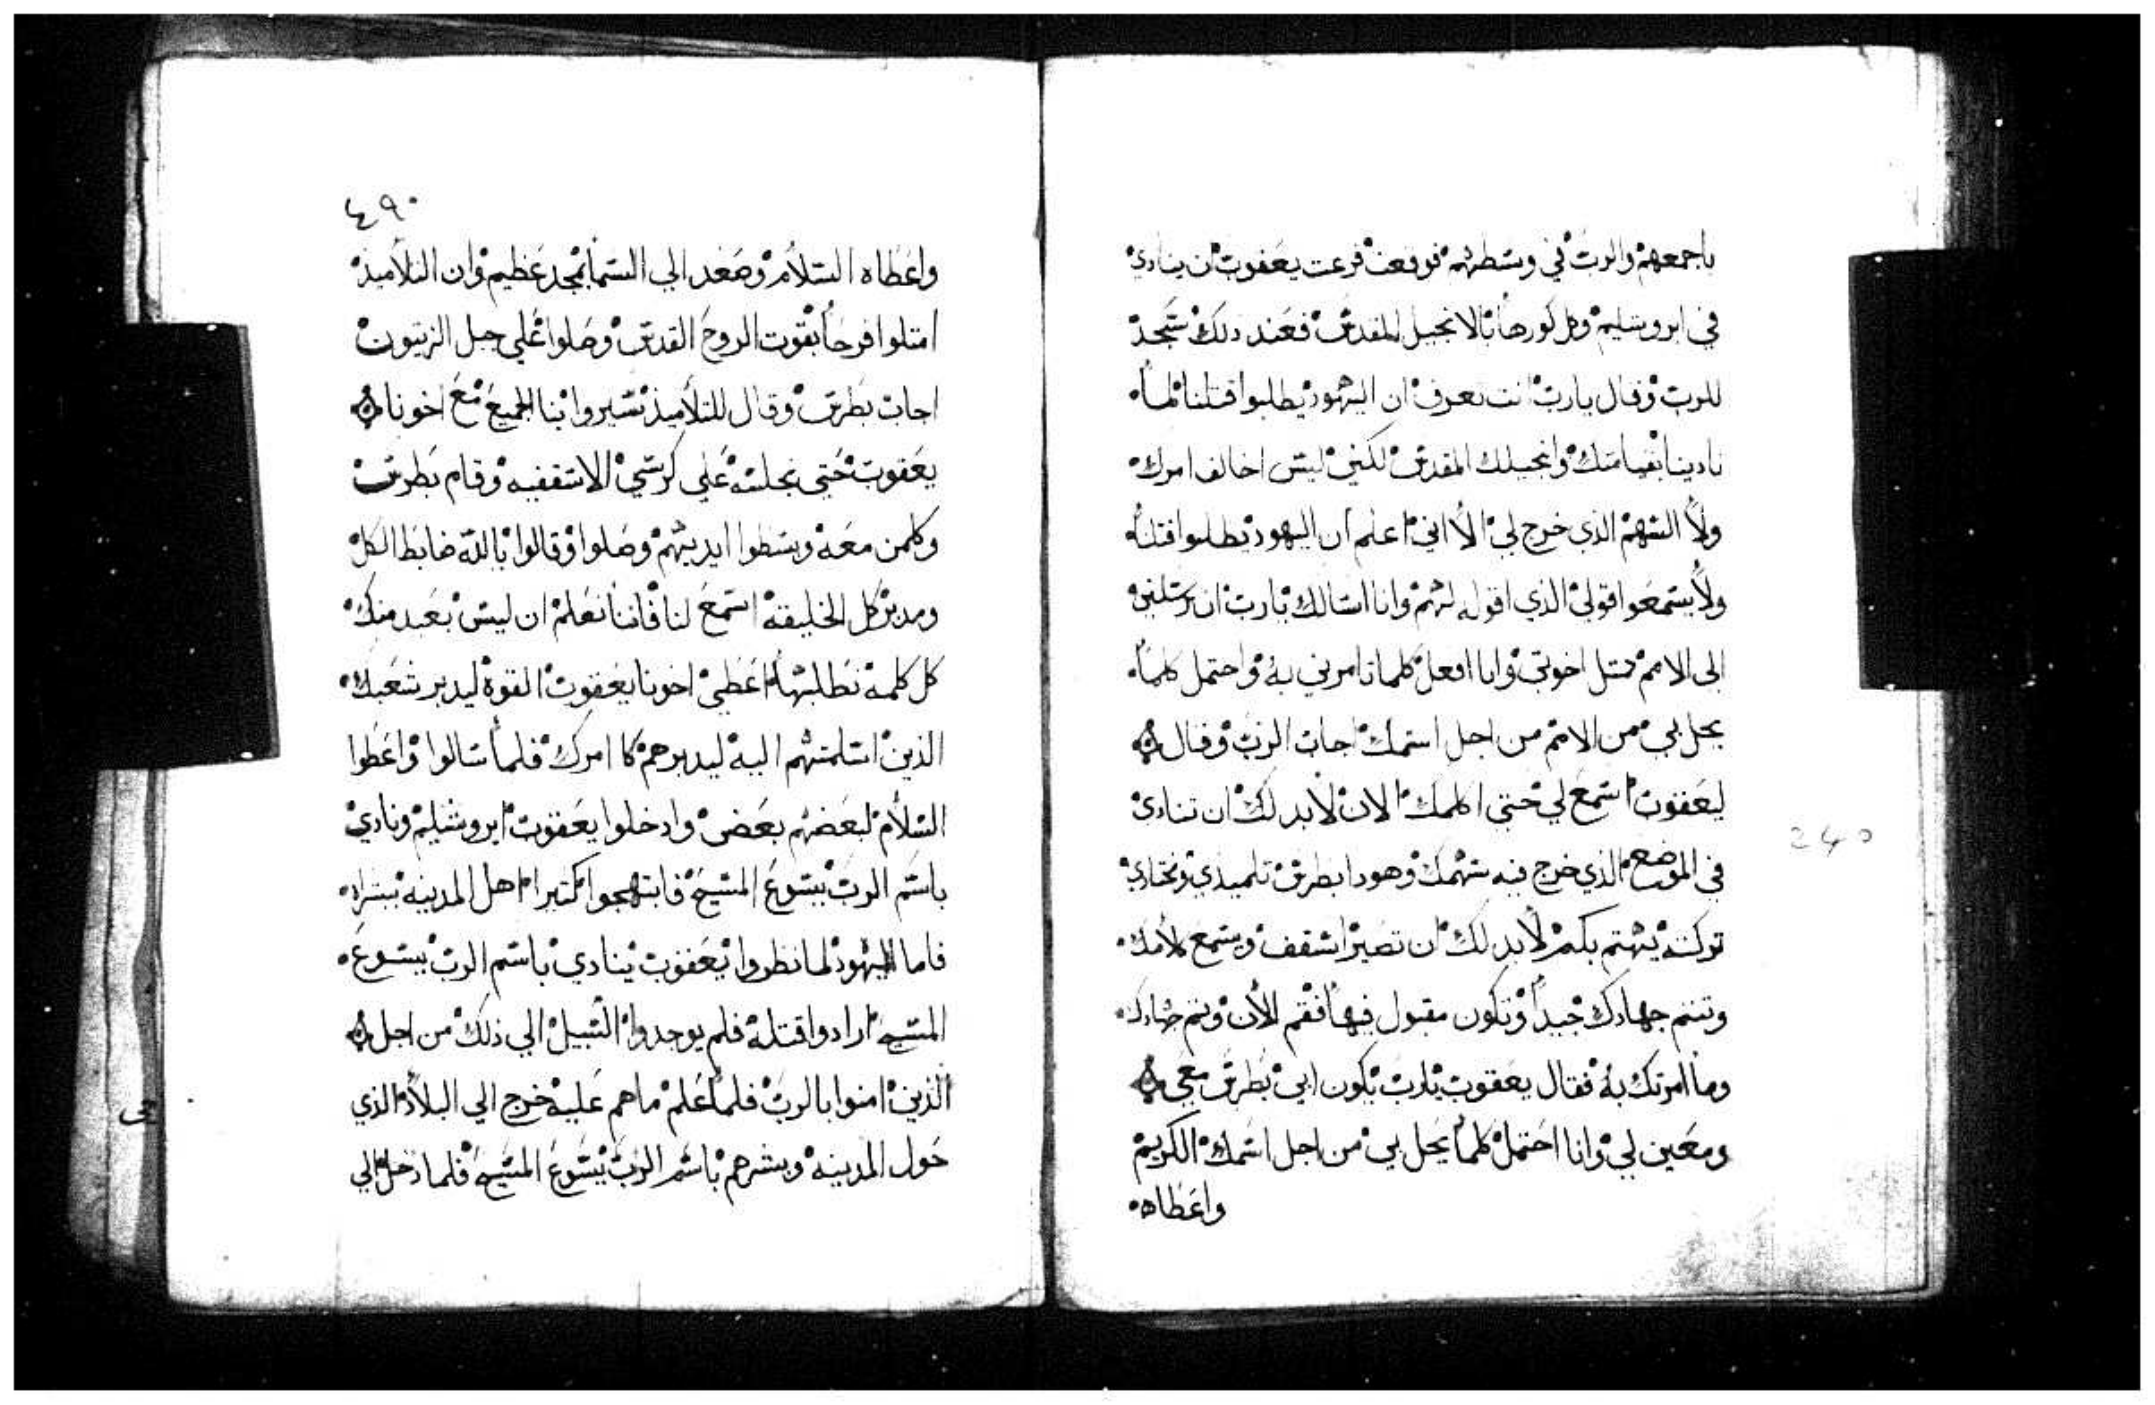 باجمعهم والرب في وسطهم فوقعت قرعت يعقوب ان ينادي
في ابروشليم وكل كورها بالانجيل المقدس فعند ذلك سجد
للرب وقال يارب انت تعرف ان اليهود يطلبوا قتلنا لما
نادينا بقيامتك وانجيلك المقدس لكني ليس اخالف امرك
ولا السهم الذي خرج لي الا اني اعلم ان اليهود يطلبوا قتلي
ولا يستمعوا قولي الذي اقوله لهم وانا اسالك يارب ان ترسلني
الى الامم متل اخوتي وانا افعل كلما تامرني به واحتمل كلما
يحل بي من الامم من اجل اسمك اجاب الرب وقال
ليعقوب اسمع لي حتي اكلمك الان لابد لك ان تنادي
في الموضع الذي خرج فيه سهمك وهودا بطرس تلميذي ومختاري
تركته يهتم بكم لابد لك ان تصير اسقف ويسمع كلامك
وتتم جهادك جيدا وتكون مقبول فيها فقم الان وتم جهادك
وما امرتك به فقال يعقوب يارب يكون ابي بطرس معي
ومعين لي وانا احتمل كلما يحل بي من اجل اسمك الكريم
واعطاه
240
٤٩٠
واعطاه السلام وصعد الي السما بمجد عظيم وان التلاميذ
امتلوا فرحا بقوت الروح القدس وصلوا علي جبل الزيتون
اجاب بطرس وقال للتلاميذ سيروا بنا الجميع مع اخونا
يعقوب حتي نجلسه علي كرسي الاسقفيه وقام بطرس
وكلمن معه وبسطوا ايديهم وصلوا وقالوا يالله ضابط الكل
ومدبر كل الخليقه استمع لنا فاننا نعلم ان ليس بعيد منك
كل كلمه نطلبها اعطي اخونا يعقوب القوة ليدبر شعبك
الذين اسلمتهم اليه ليدبرهم كا امرك فلما سالوا واعطوا
السلام لبعضهم بعض وادخلوا يعقوب ابروشليم ونادي
باسم الرب يسوع المسيح فابتهجوا كتيرا اهل المدينه ببشراه
فاما اليهود لما نظروا يعقوب ينادي باسم الرب يسوع
المسيح ارادوا قتله فلم يوجدوا السبيل الي ذلك من اجل
الذين امنوا بالرب فلما علم ما هم عليه خرج الي البلاد الذي
حول المدينه وبشرهم باسم الرب يسوع المسيح فلما دخل الي